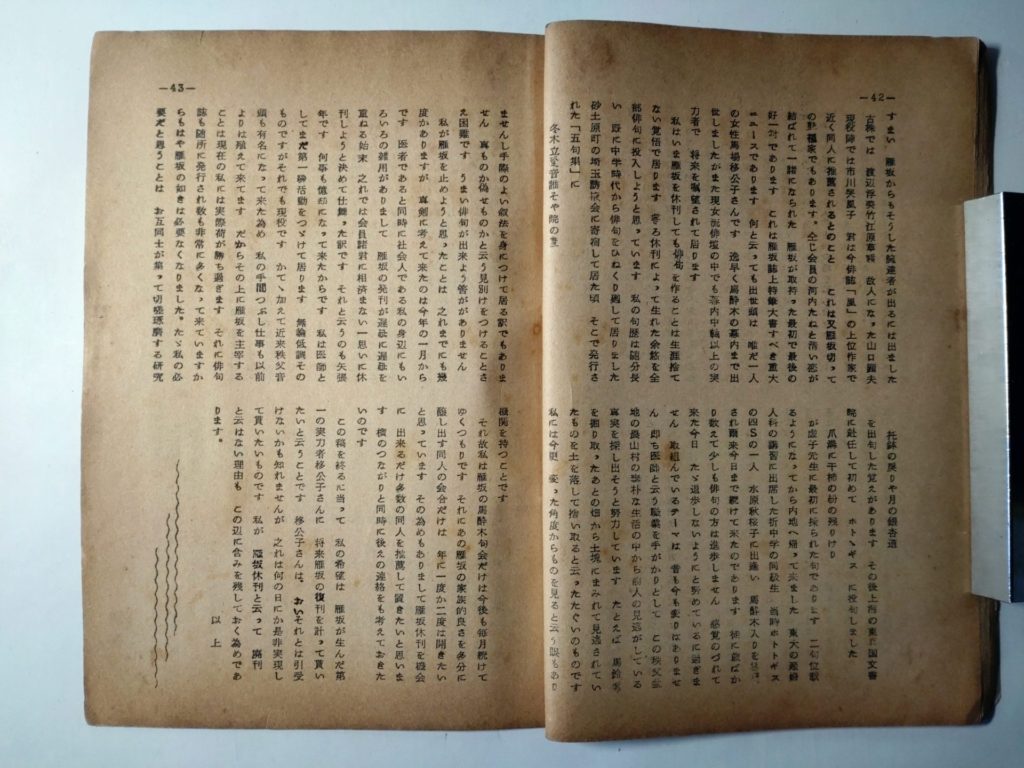 —42—
すまい 雁坂からもそうした練達者が出るには出ました
古株では 渡辺浮美竹江原草顆 故人になった山口
現役陣では市川 風子 君は今俳誌「風」の上位作家で
近く同人に推薦されるとのこと これは又雁坂切って
の 福家でもあります。全じ会員の河内たねと清い恋が
結ばれて一緒になられた 雁坂が取持った最初で最後の
好一対であります これは雁坂誌上特筆大書すべき重大
ニュースであります 何と云っても出世頭は 唯だ一人
の女性馬場移公子さんです 逸早く馬酔木の幕内まで出
世しましたがまた現女流俳壇の中でも幕内中軸以上の実
力者で 将来を嘱望されて居ります
私はいま雁坂を休刊しても俳句を作ることは生涯捨て
ない覚悟で居ります 寧ろ休刊によって生れた余裕を全
部俳句に投入しようとも思っています 私の句歴は随分長
い 既に中学時代から俳句をひねくり廻して居りました
砂土原町の埼玉誘掖会に寄宿して居た頃 そこで発行さ
れた「五句集」に
冬木立跫音誰そや院の裏
托鉢の戻りや月の銀杏道
を出句した覚えがあります その後上海の東亜同文書
院に赴任して初めて ホトトギス に投句しました
爪 に干柿の粉の残りけり
が虚子先生に最初に採られた句であります 二句位載
るようになってから内地へ帰って来ました 東大の産婦
人科の講習に出席した折中学の同級生 当時ホトトギス
の四Sの一人 水原秋桜子に出逢い 馬酔木入りを
され爾来今日まで続けて来たのであります 徒に歳ばか
り数えて少しも俳句の方は進歩しません 感覚のづれて
来た今日 たゞ退歩しないようにと努めているに過ぎま
せん 取組んでいるテーマは 昔も今も変りはありませ
ん 即ち医師と云う職業を手がかりとして この秩父盆
地の農山村の素朴な生活の中から俳人の見逃がしている
真実を探し出そうと努力しています たとえば 馬鈴薯
を掘り取ったあとの畑から土塊にまみれて見逃されてい
たものを土を落して拾い取ると云ったたぐいのものです
私には今更 変った角度からものを見ると云う眼もあり
—43—
ませんし手際のよい叙法を身につけて居る訳でもありま
せん 真ものか偽せものかと云う見別けをつけることさ
え困難です うまい俳句が出来よう筈がありません
私が雁坂を止めようと思ったことは 之れまでにも幾
度かありますが 真剣に考えて来たのは今年の一月から
です 医者であると同時に社会人である私の身辺にもい
ろいろの雑用がありまして 雁坂の発刊が遅延に遅延を
重ねる始末 之れでは会員諸君に相済まない一思いに休
刊しようと決めて仕舞った訳です それと云うのも矢張
年です 何事も億劫になって来たからです 私は医師と
してまだ第一線活動をつゞけて居ります 無論低調その
ものですがそれでも現役です かてゝ加えて近来秩父音
頭も有名になって来た為め 私の手間つぶし仕事も以前
よりは殖えて来てます だからその上に雁坂を主宰する
ことは現在の私には実際荷が勝ち過ぎます それに俳句
誌も随所に発行され数も非常に多くなって来ていますか
らもはや雁坂の如きは必要なくなりました。たゞ私の必
要だと思うことは お互同士が集って切磋琢磨する研究
機関を持つことです
それ故私は雁坂の馬酔木句会だけは今後も毎月続けて
ゆくつもりです それにあの雁坂の家族的良さを多分に
醸し出す同人の会合だけは 年に一度か二度は開きたい
と思っています その為めもありまして雁坂休刊を機会
に 出来るだけ多数の同人を推薦して置きたいと思いま
す 横のつながりと同時に後えの連絡をも考えておきた
いのです
この稿を終るに当って 私の希望は 雁坂が生んだ第
一の実力者移公子さんに 将来雁坂の復刊を計って貰い
たいと云うことです 移公子さんは、おいそれとは引受
けないかも知れませんが 之れは何の日にか是非実現し
て貰いたいものです 私が 雁坂休刊と云って 廃刊
と云はない理由も この辺に含みを残しておく為めであ
ります。
以上